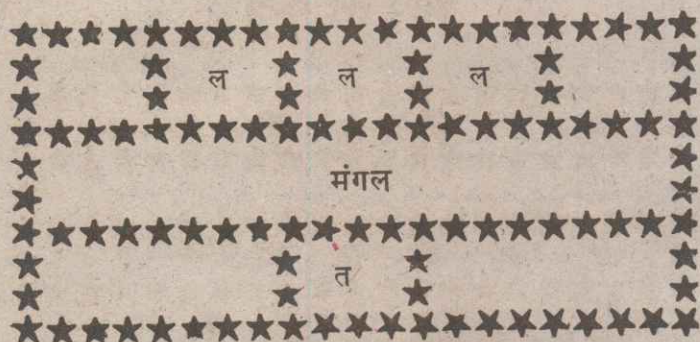 ल ल ल
मंगल
त